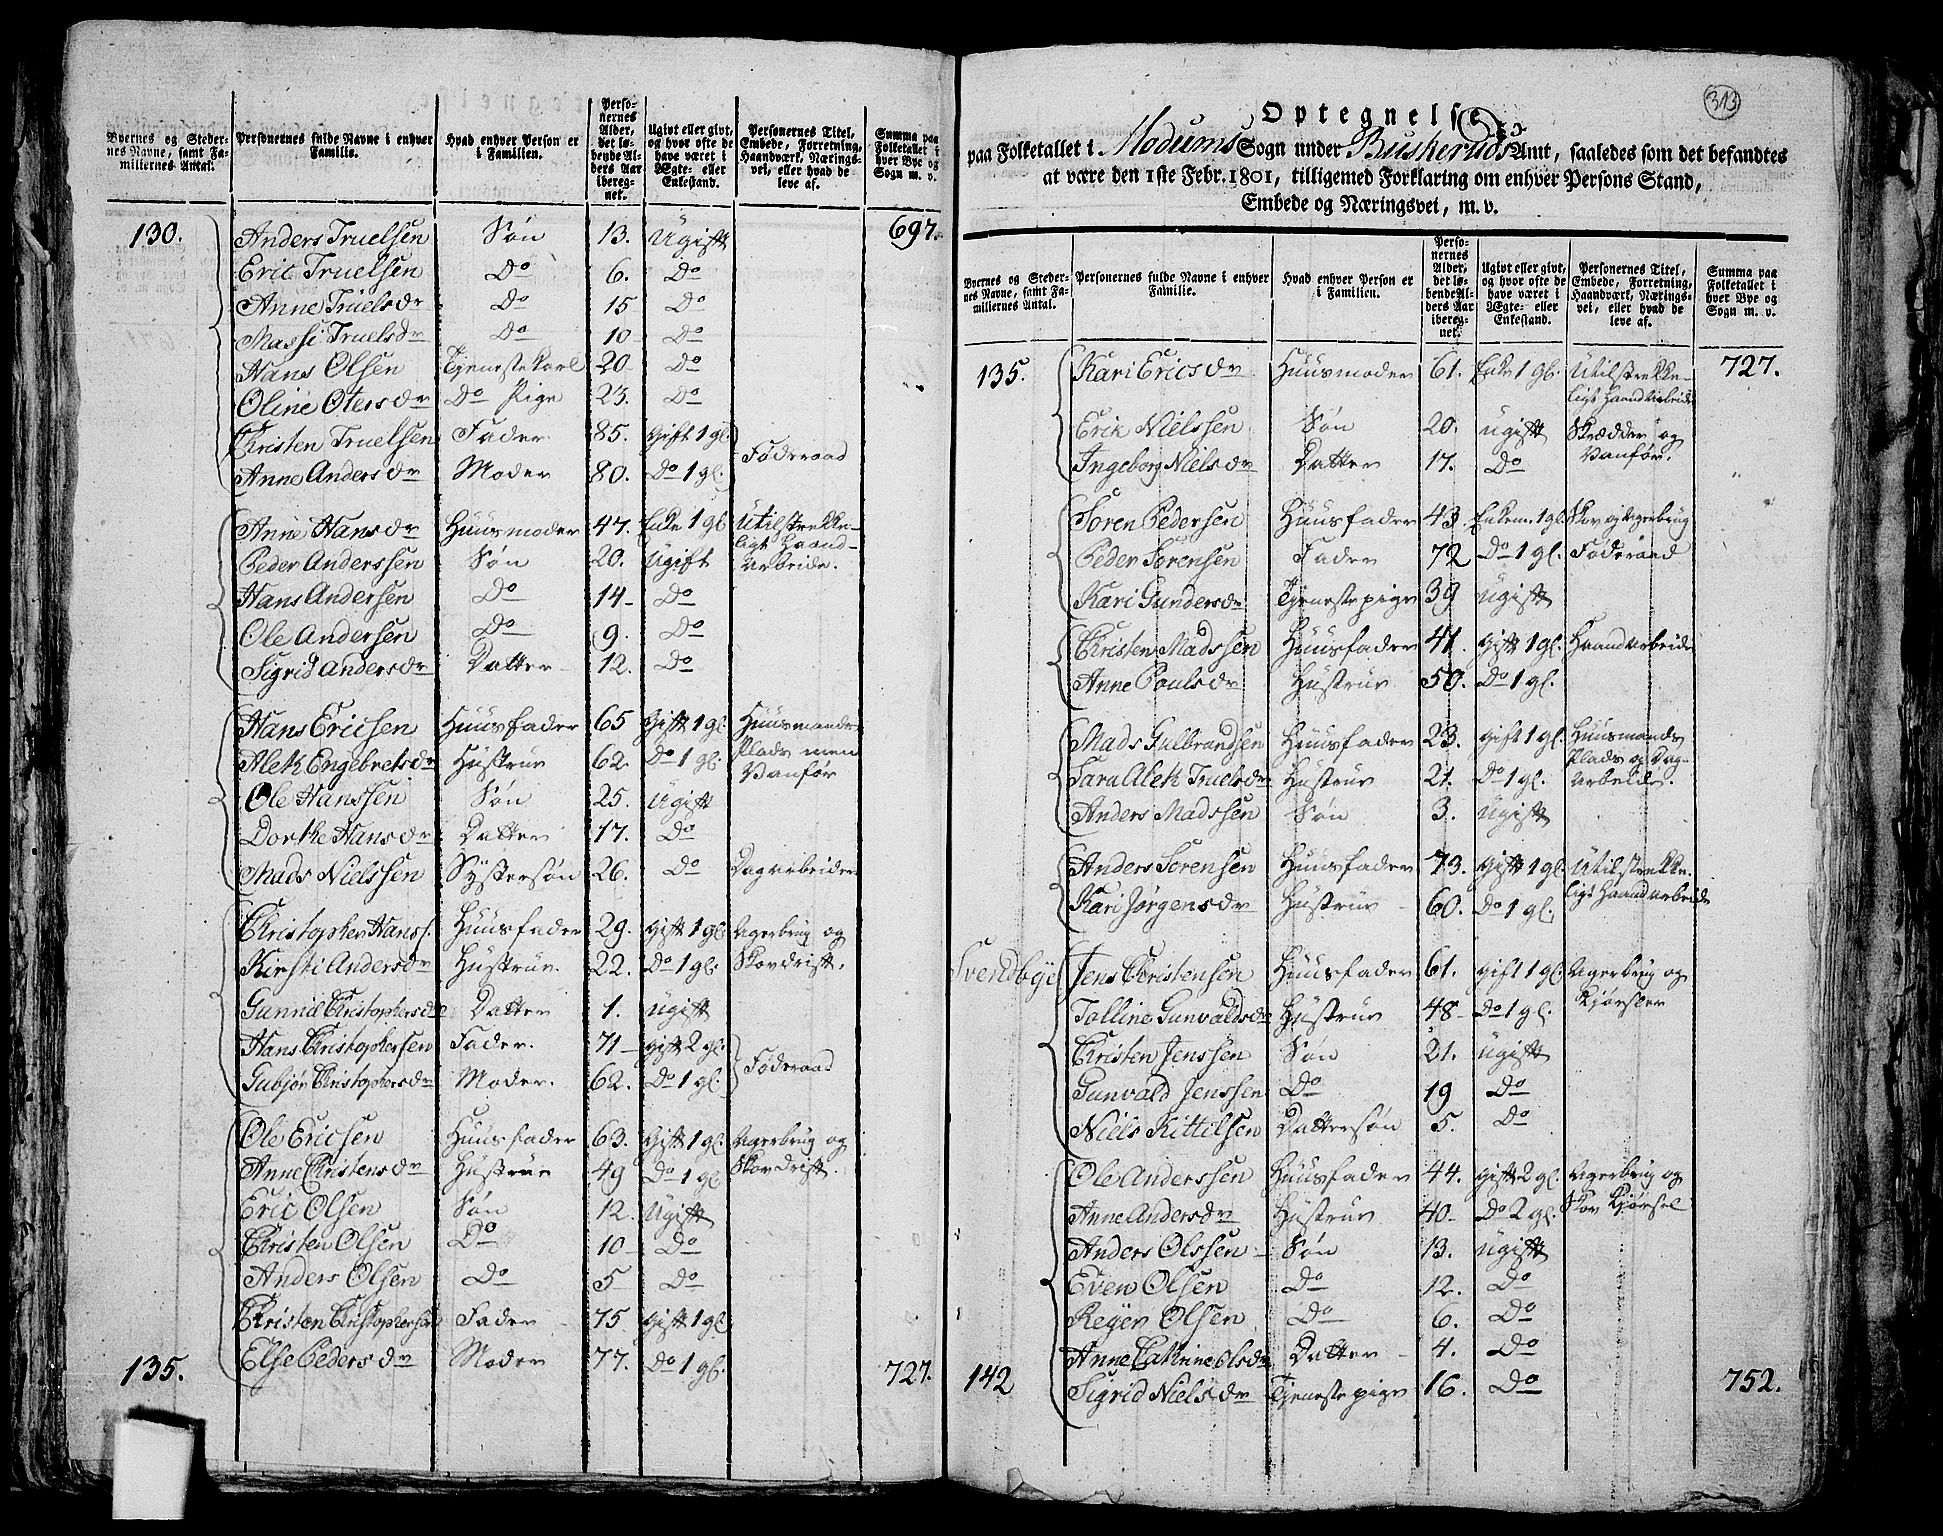 Byernes og Steder-
nes Navne, samt Fa-
miliernes Antal.
Personernes fulde Navne i enhver
Familie.
Hvad enhver Person er
i Familien.
Perso-
nernes
Alder,
det lø-
bende Al-
ders Aar
iberegg-
net.
Ugivt eller givt,
og hvor ofte de
have været i
Ægte- eller
Enkestand.
Personernes Titel,
Embede, Forretning,
Haandværk, Nærings-
vei, eller hvad de
leve af.
Summa paa
Folketallet i
hver Bye og
Sogn m. v.
130. Anders Truelsen Søn 13. Ugift 697.
Eric Truelsen Do 6. Do
Anne Truelsdr Do 15 Do
Massi Truelsdr Do 10 Do
Hans Olsen Tjenestekarl 20 Do
Oline Otersdr Do Pige 23. Do
Christen Truelsen Fader 85. Gift 1 gl Föderaad
Anne Andersdr Moder 80. Do 1 gl.
Anne Hansdr Huusmoder 47. Enke 1 gl Utilstrekke-
ligt Haand-
Peder Anderssen Søn 20. Ugift Arbeide.
Hans Andersen Do 14 Do
Ole Andersen Do 9. Do
Sigrid Andersdr Datter 12. Do
Hans Ericsen Huusfader 65 Gift 1 gl Huusmands
Alek Engebretsdr Hustrue 62. Do 1 gl. Plads men
Vanför
Ole Hanssen Søn 25. Ugift
Dorthe Hansdr Datter 17. Do
Mads Nielssen Systersön 26. Do Dagarbeider
Christopher Hans. Huusfader 29. Gift 1 gl Agerbrug og
Kirsti Andersdr Hustrue. 22. Do 1 gl. Skovdrift.
Gunnil Christophersdr Datter 1. Ugift
Hans Christophersen Fader. 71 gift 2 gl. Föderaad
Gubjør Christophersdr Moder. 62. Do 1 gl.
Ole Ericsen Huusfader 63. Gift 1 gl. Agerbrug og
Anne Christensdr Hustrue 49 Do 1 gl Skovdrift.
Eric Olsen Søn 12. Ugift
Christen Olsen Do 10 Do
Anders Olsen Do 5 Do
Christen Christophersen Fader 75 Gift 1 gl
135. Else Pedersdr Moder 77. Do 1 gl. 727.
313
Optegnelse
paa Folketallet i Modums Sogn under Buskeruds Amt, saaledes som det befandtes
at være den 1ste Febr. 1801, tilligemed Forklaring om enhver Persons Stand,
Embede og Næringsvei, m. v.
Byernes og Steder-
nes Navne, samt Fa-
miliernes Antal.
Personernes fulde Navne i enhver
Familie.
Hvad enhver Person er
i Familien.
Perso-
nernes
Alder,
det lø-
bende Al-
ders Aar
iberegg-
net.
Ugivt eller givt,
og hvor ofte de
have været i
Ægte- eller
Enkestand.
Personernes Titel,
Embede, Forretning,
Haandværk, Nærings-
vei, eller hvad de
leve af.
Summa paa
Folketallet i
hver Bye og
Sogn m. v.
135. Kari Ericsdr Huusmoder 61. Enke 1 gl. Utilstrekke- 727.
ligt Haandarbeide
Erik Nielssen Søn 20. ugift Skrædder og
Ingeborg Nielsdr Datter 17. Do Vanför.
Søren Pedersen Huusfader 43 Enkem. 1 gl. Skov og Agerbrug
Peder Sørensen Fader 72 Do 1 gl. Föderaad
Kari Gundersdr Tjenestepige 39 ugift
Christen Madssen Huusfader 41. gift 1 gl. Haandarbeide
Anne Poulsdr Hustrue 50. Do 1 gl.
Mads Gulbrandsen Huusfader 23. gift 1 gl. Huusmands
Plads og Dag-
Sara Alek Truelsdr Hustrue 21. Do 1 gl. Arbeide.
Anders Madssen Søn 3. Ugift
Anders Sørensen Huusfader 73. gift 1 gl. Utilstrekke-
Kari Jørgensdr Hustrue 60. Do 1 gl. ligt Haandarbeide
Svendbye Jens Christensen Huusfader 61. gift 1 gl. Agerbrug og
Tolline Gunvaldsdr Hustrue 48 Do 1 gl. Kjørsler
Christen Jenssen Søn 21. ugift
Gunvald Jenssen Do 19 Do
Niels Kittilsen Dattersön 5. Do
Ole Anderssen Huusfader 44. gift 2 gl. Agerbrug og
Anne Andersdr Hustrue 40 Do 2 gl. Skov Kjørsel
Anders Olssen Søn 13. ugift
Even Olsen Do 12. Do
Reyer Olsen Do 6. Do
Anne Cathrine Olsdr Datter 4. Do
142 Sigrid Nielsdr Tjenestepige 16. Do 752.